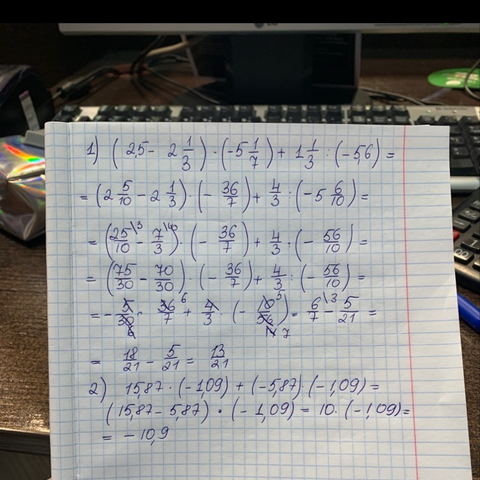 1) (2,5 - 2 1/3) · (-5 1/7) + 1 1/3 : (-5,6) =
= (2 5/10 - 2 1/3) · (- 36/7) + 4/3 : (-5 6/10) =
= (25/10 \3 - 7/3 \10) · (- 36/7) + 4/3 · (- 56/10) =
= (75/30 - 70/30) · (- 36/7) + 4/3 : (- 56/10) =
= - 5/30 · 36/7 + 4/3 · (- 10/56) = 6/7 \3 - 5/21 =
= 18/21 - 5/21 = 13/21
2) 15,87 · (-1,09) + (-5,87) · (-1,09) =
(15,87 - 5,87) · (-1,09) = 10 · (-1,09) =
= - 10,9